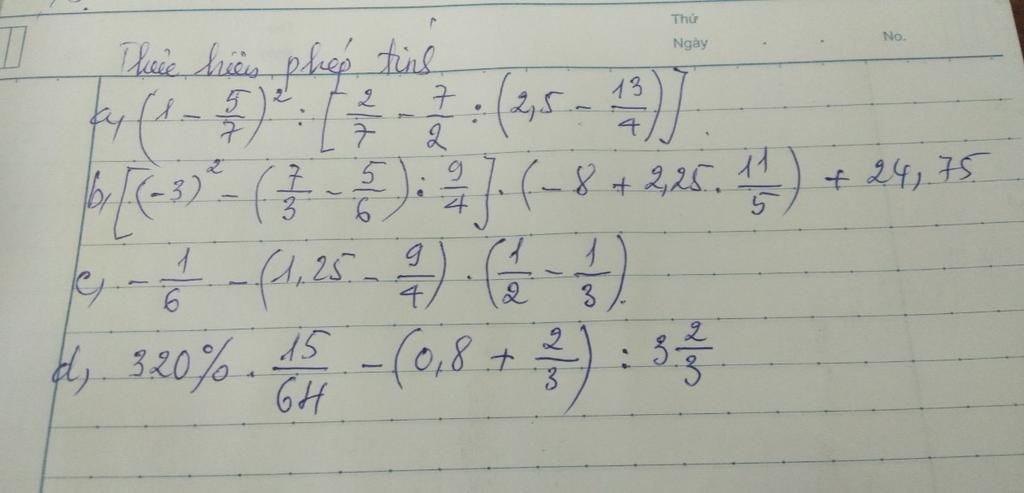 Thứ
Ngày . . No.
Thực hiện phép tính
a, (1 - 5/7)² : [2/7 - 7/2 : (2,5 - 13/4)].
b, [(-3)² - (7/3 - 5/6) : 9/4] . (-8 + 2,25 . 11/5) + 24,75
c, -1/6 - (1,25 - 9/4) . (1/2 - 1/3).
d, 320% . 15/64 - (0,8 + 2/3) : 3 2/3